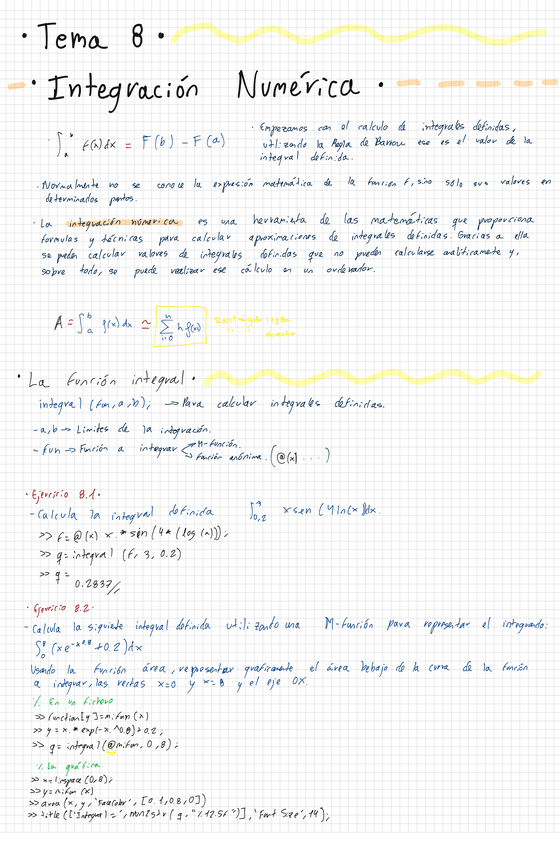 · Tema 8 ·
· Integración Numérica ·
∫_a^b f(x)dx = F(b) - F(a)
· Empezamos con el calculo de integrales definidas,
utilizando la Regla de Barrow ese es el valor de la
integral definida.
· Normalmente no se conoce la expresión matemática de la función F, sino solo sus valores en
determinados puntos.
· La integración númerica es una herramienta de las matemáticas que proporciona
formulas y técnicas para calcular aproximaciones de integrales definidas. Gracias a ella
se pueden calcular valores de integrales definidas que no pueden calcularse analíticamente y,
sobre todo, se puede realizar ese cálculo en un ordenador.
A = ∫_a^b f(x)dx ≃ ∑_{i=0}^n h f(xi)
· La función integral ·
integral (fun, a, b); → Para calcular integrales definidas.
- a, b → Limites de la integración.
- fun → Función a integrar
M-función.
función anónima. (@(x) ...)
· Ejercicio 8.1 ·
- Calcula la integral definida ∫_{0,2}^3 x sen (4 ln(x))dx.
>> f = @(x) x.*sin(4*(log(x)));
>> q = integral (f, 3, 0.2)
>> q =
0.2837//
· Ejercicio 8.2 ·
- Calcula la siguiete integral definida utilizando una M-función para representar el integrando:
∫_0^8 (xe^{-x^0.8} + 0.2)dx
Usando la función área, representar graficamente el área debajo de la curva de la función
a integrar, las rectas x=0 y x=8 y el eje OX.
% En un fichero
>> function[y]=mifun(x)
>> y = x.*exp(-x.^0.8)+0.2;
>> q = integral(@mifun, 0, 8);
% La gráfica
>> x=linspace(0,8);
>> y=mifun(x)
>> area(x, y, 'FaceColor', [0.1,0.8,0])
>> title(['Integral = ', num2str(q, "%12.5f")], 'Font Size', 14);